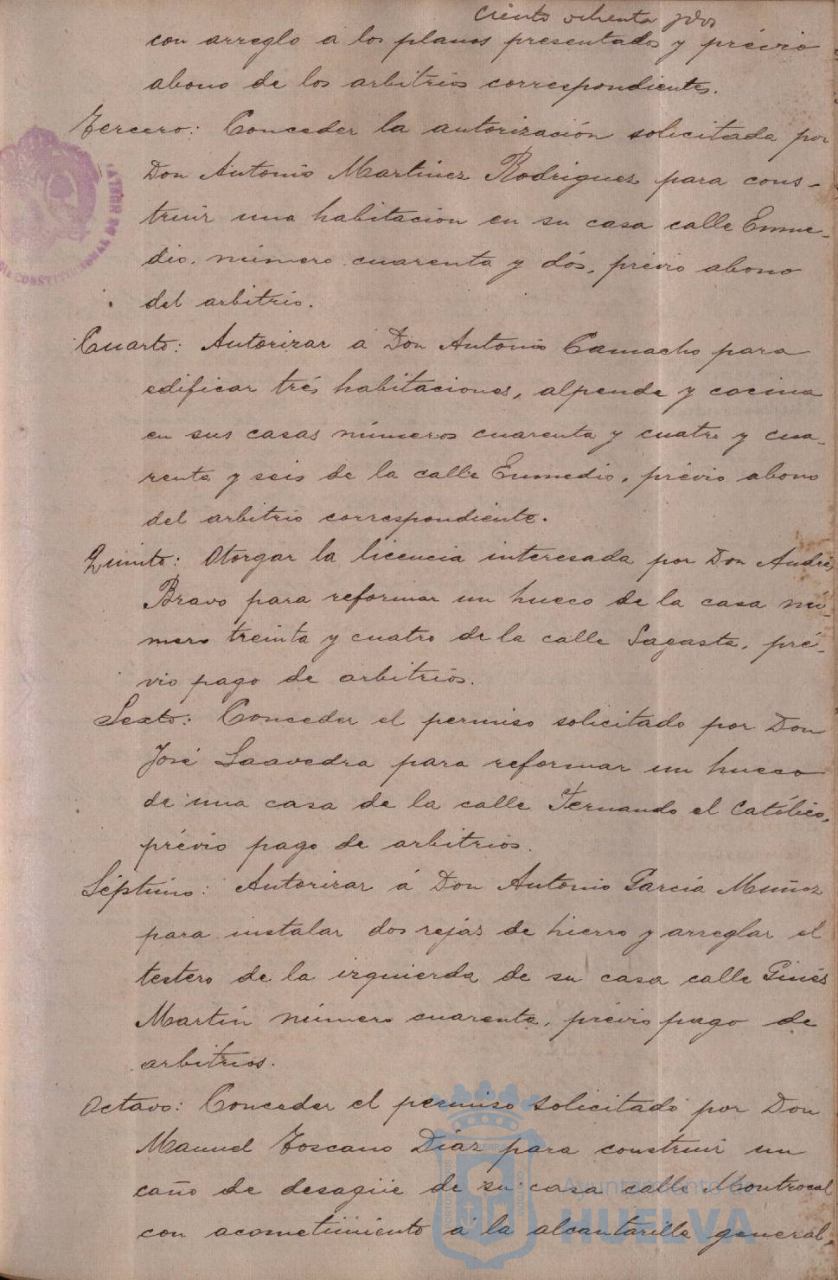 ciento ochenta y dos
con arreglo á los planos presentados y prévio
abono de los arbitrios correspondientes.
Tercero: Conceder la autorización solicitada por
Don Antonio Martinez Rodriguez para cons-
truir una habitación en su casa calle Enme-
dio, número cuarenta y dós, prévio abono
del arbitrio.
Cuarto: Autorizar á Don Antonio Camacho para
edificar trés habitaciones, alpende y cocina
en sus casas números cuarenta y cuatro y cua-
renta y seis de la calle Enmedio, prévio abono
del arbitrio correspondiente.
Quinto: Otorgar la licencia interesada por Don Andrés
Bravo para reformar un hueco de la casa nú-
mero treinta y cuatro de la calle Sagasta, pré-
vio pago de arbitrios.
Sexto: Conceder el permiso solicitado por Don
José Saavedra para reformar un hueco
de una casa de la calle Fernando el Católico,
prévio pago de arbitrios.
Séptimo: Autorizar á Don Antonio García Muñoz
para instalar dos rejas de hierro y arreglar el
testero de la izquierda de su casa calle Ginés
Martín número cuarenta, prévio pago de
arbitrios.
Octavo: Conceder el permiso solicitado por Don
Manuel Toscano Díaz para construir un
caño de desagüe de su casa calle Montrocal
con acometimiento á la alcantarilla general,
CONSTITUCIONAL DE
Ayuntamiento de
HUELVA